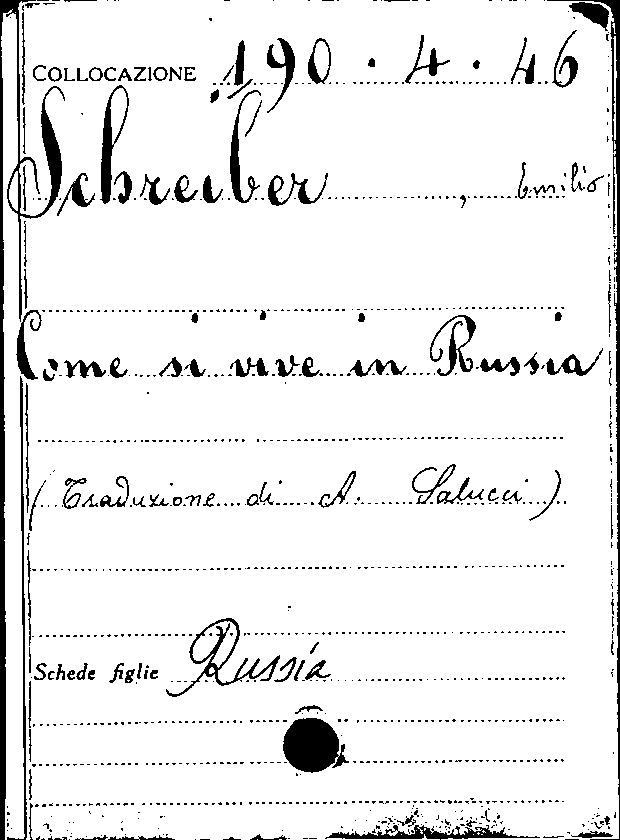 COLLOCAZIONE 190.4.46
Schreiber, Emilio
Come si vive in Russia
(Traduzione di A. Salucci)
Schede figlie Russia